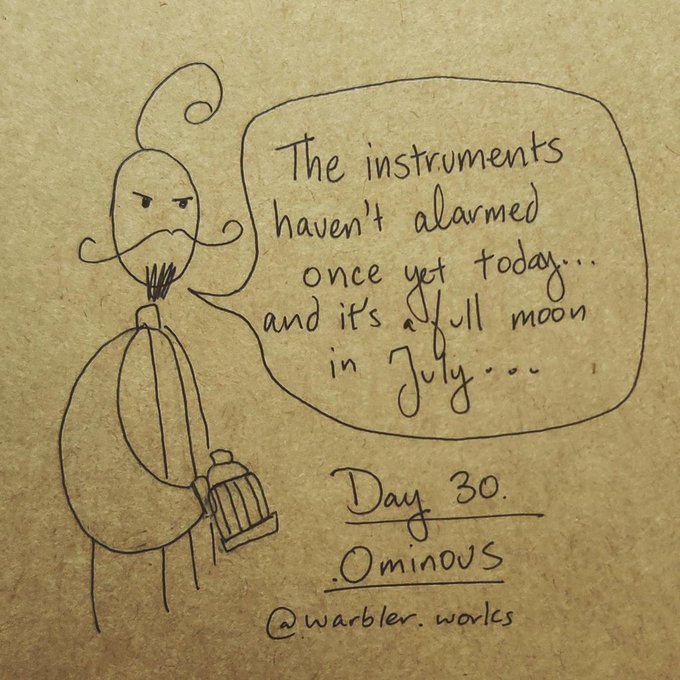 The instruments
haven't alarmed
once yet today...
and it's a full moon
in July....
Day 30.
.Ominous
@warbler.works